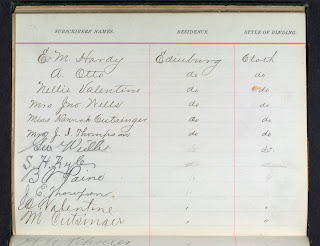 SUBSCRIBERS NAMES. RESIDENCE. STYLE OF BINDING.
E. M. Hardy Edinburg Cloth
A. Otto do do
Nellie Valentine do do
Mrs Jno Wells do do
Miss Hannah Cutsinger do do
Mrs J. I. Thompson do do
do
S. H. Kyle " "
B P Paine " "
J. E. Thompson " "
Valentine " "
M Cutsinger " "